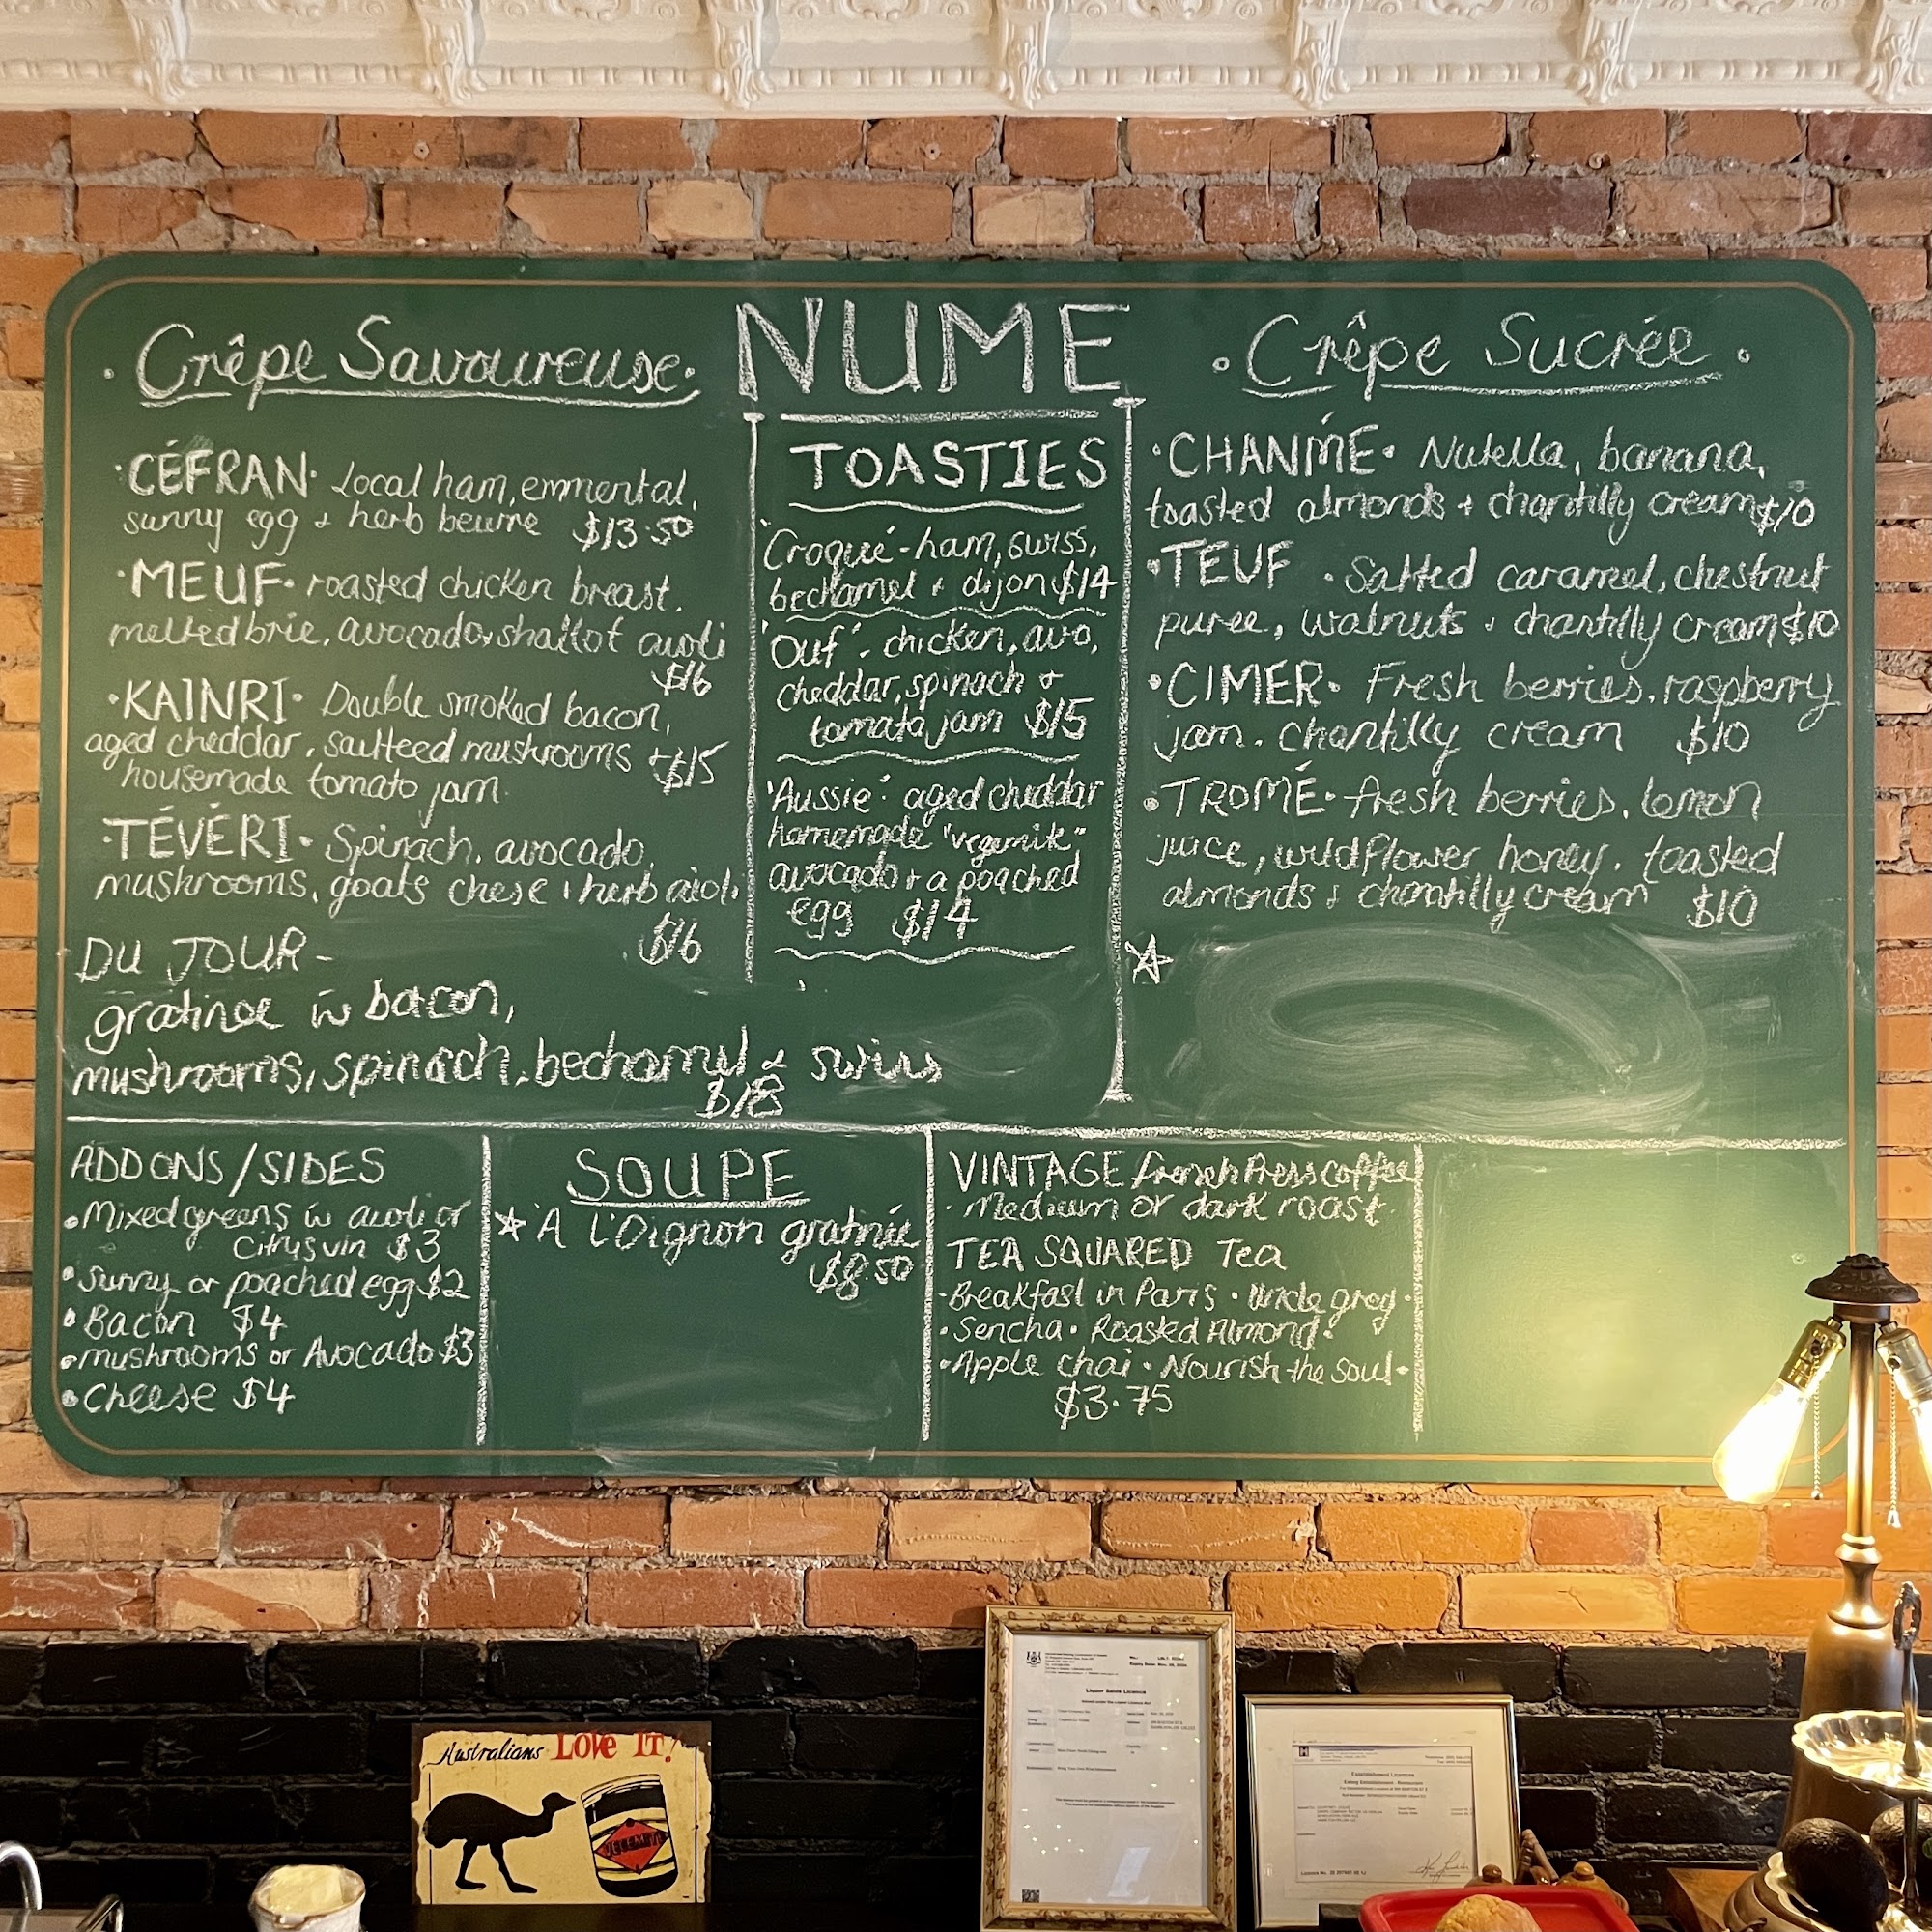 NUME
· Crêpe Savoureuse ·
·CÉFRAN· Local ham, emmental,
sunny egg + herb beurre $13.50
·MEUF· roasted chicken breast,
melted brie, avocado, shallot aioli
$16
·KAINRI· Double smoked bacon,
aged cheddar, sautteed mushrooms + $15
housemade tomato jam.
·TÉVÉRI· Spinach, avocado,
mushrooms, goats chese + herb aioli
$16
DU JOUR -
gratinee w bacon,
mushrooms, spinach, bechamel & swiss
$18
TOASTIES
'Croque' - ham, swiss,
bechamel + dijon $14
'Ouf': chicken, avo,
cheddar, spinach +
tomato jam $15
'Aussie': aged cheddar
homemade "vegemite"
avocado + a poached
egg $14
· Crêpe Sucrée ·
·CHANMÉ· Nutella, banana,
toasted almonds + chantilly cream $10
·TEUF · Salted caramel, chestnut
puree, walnuts + chantilly cream $10
·CIMER· Fresh berries, raspberry
jam, chantilly cream $10
·TROMÉ· fresh berries, lemon
juice, wildflower honey, toasted
almonds + chantilly cream $10
ADDONS/SIDES
·Mixed greens w aioli or
citrus vin $3
·Sunny or poached egg $2
·Bacon $4
·mushrooms or Avocado $3
·Cheese $4
SOUPE
☆ À l'Oignon gratinée
$8.50
VINTAGE French Press coffee
· Medium or dark roast.
TEA SQUARED Tea
·Breakfast in Paris · Uncle grey ·
·Sencha · Roasted Almond ·
·Apple chai · Nourish the soul ·
$3.75
Australians LOVE IT!
VEGEMITE
Liquor Sales Licence
Establishment Licences
Eating Establishment - Restaurant